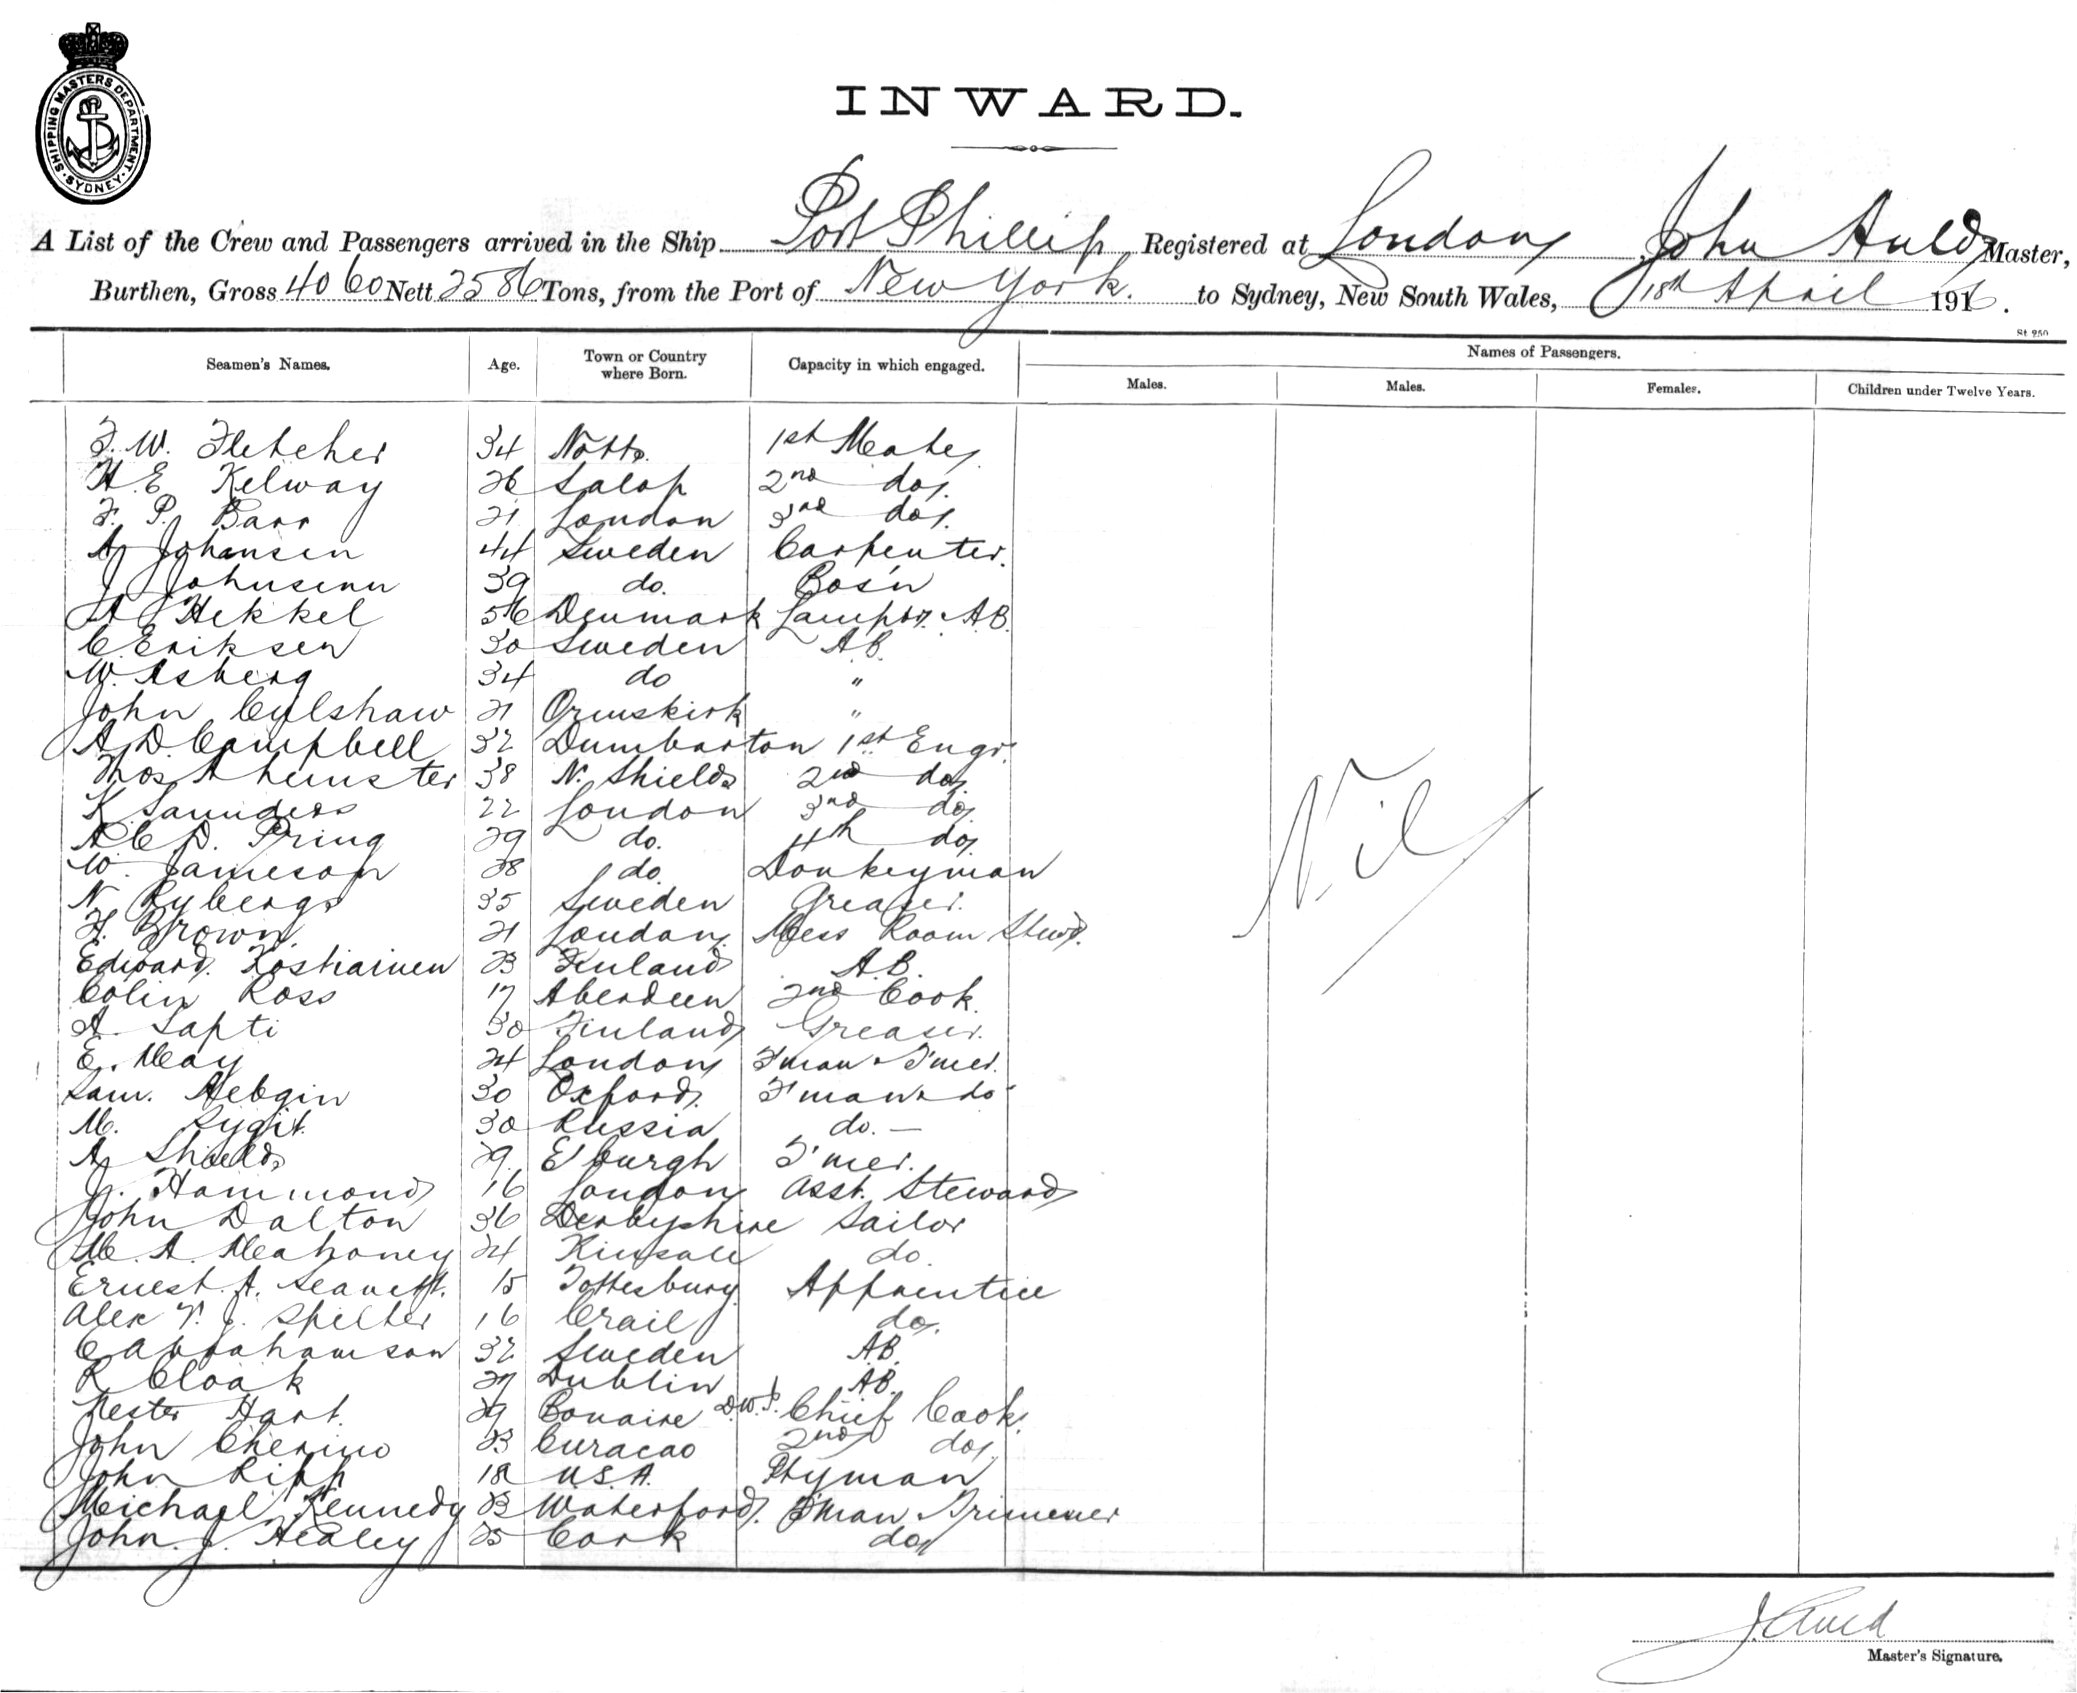 SHIPPING MASTERS DEPARTMENT. SYDNEY.
INWARD.
A List of the Crew and Passengers arrived in the Ship Port Phillip Registered at London John Auld Master,
Burthen, Gross 4060 Nett 2586 Tons, from the Port of New York. to Sydney, New South Wales, 18th April 1916.
St 950
Seamen's Names. Age. Town or Country where Born. Capacity in which engaged. Names of Passengers.
Males. Males. Females. Children under Twelve Years.
F. W. Fletcher 34 Notts. 1st Mate
H. E. Kelway 26 Salop 2nd do.
F. P. Barr 21 London 3rd do.
A. Johansen 44 Sweden Carpenter.
J. Johnsenn 39 do. Bos'n
A Hekkel 56 Denmark Lamptr. A.B.
C. Eriksen 30 Sweden A.B.
W. Asberg 34 do "
John Culshaw 21 Ormskirk "
A. D. Campbell 32 Dumbarton 1st Engr.
Thos. A 38 N. Shields 2nd do.
K. Saunders 22 London 3rd do.
A C D. Pring 29 do. 4th do.
W. Jameson 28 do. Donkeyman
N. Rybergs 35 Sweden Greaser.
F. Brown 21 London Mess Room Stwd.
Edward. Kostiainen 23 Finland A.B.
Colin Ross 17 Aberdeen 2nd Cook.
A. Lapti 30 Finland Greaser.
E. May 24 London F'man & T'mer.
Sam. Hebgin 30 Oxford. F'man & do
M. Sygit. 30 Russia do. —
A. Shields 29. E'burgh T'mer.
J. Hammond 16 London Asst. Steward
John Dalton 36 Derbyshire Sailor
M. A. Mahoney 24 Kinsale do.
Ernest. A. 15 Tollesbury. Apprentice
Alex T. J. Spilter 16 Crail do.
C Abrahamson 32 Sweden A.B.
R Cloak 27 Dublin A.B.
Nester Hart. 29 Bonaire D.W.I. Chief Cook.
John Cherino 23 Curacao 2nd do.
John Ripp 18 U.S.A. P'tyman
Michael Kennedy 23 Waterford. F'man Trimmer
John. J. Healey 25 Cork do.
Nil
J Auld
Master's Signature.